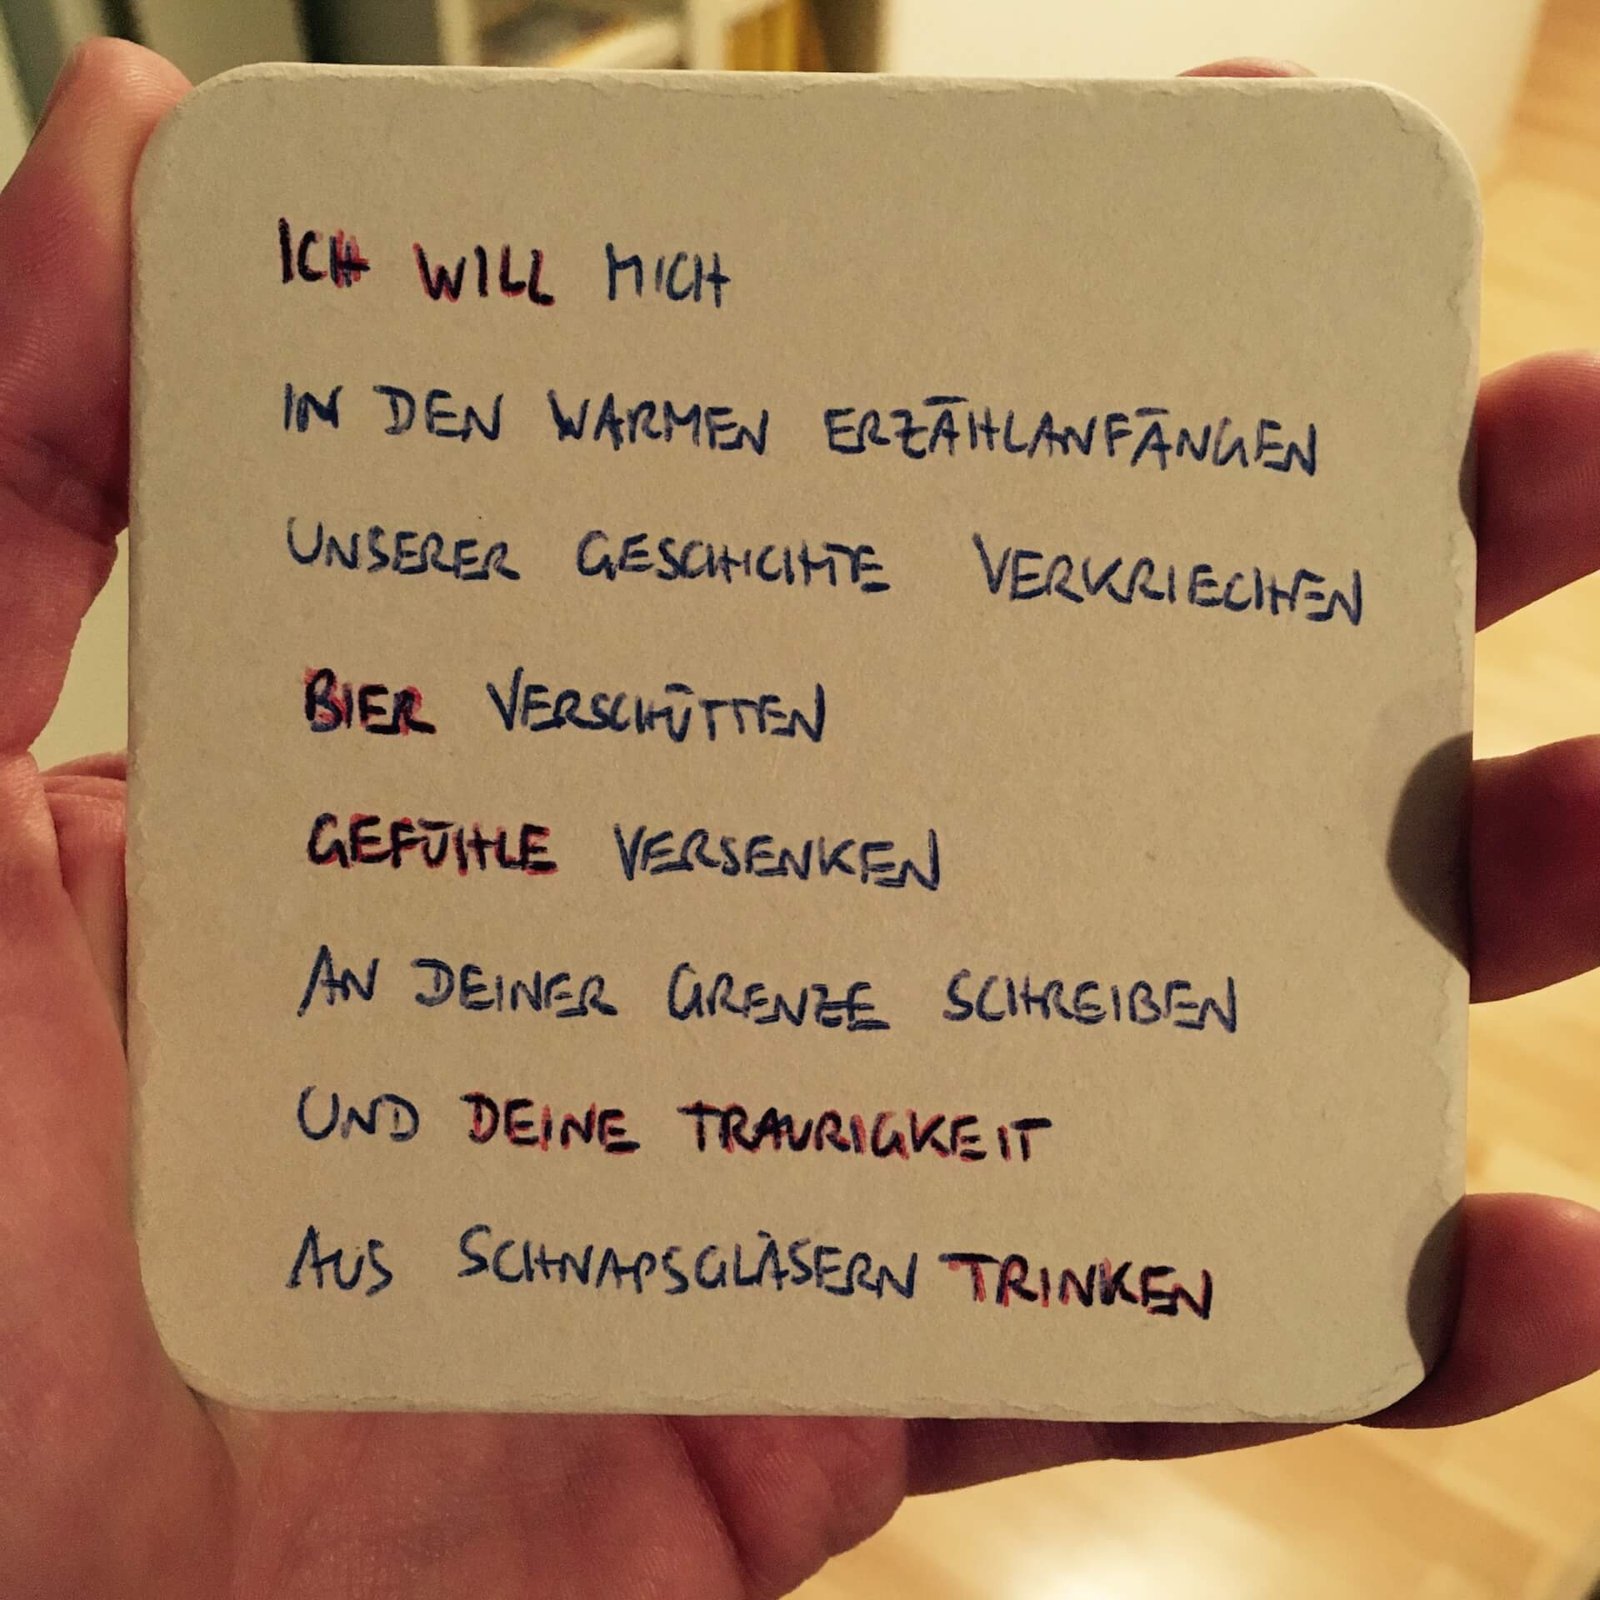 ICH WILL MICH
IN DEN WARMEN ERZÄHLANFÄNGEN
UNSERER GESCHICHTE VERKRIECHEN
BIER VERSCHÜTTEN
GEFÜHLE VERSENKEN
AN DEINER GRENZE SCHREIBEN
UND DEINE TRAURIGKEIT
AUS SCHNAPSGLÄSERN TRINKEN